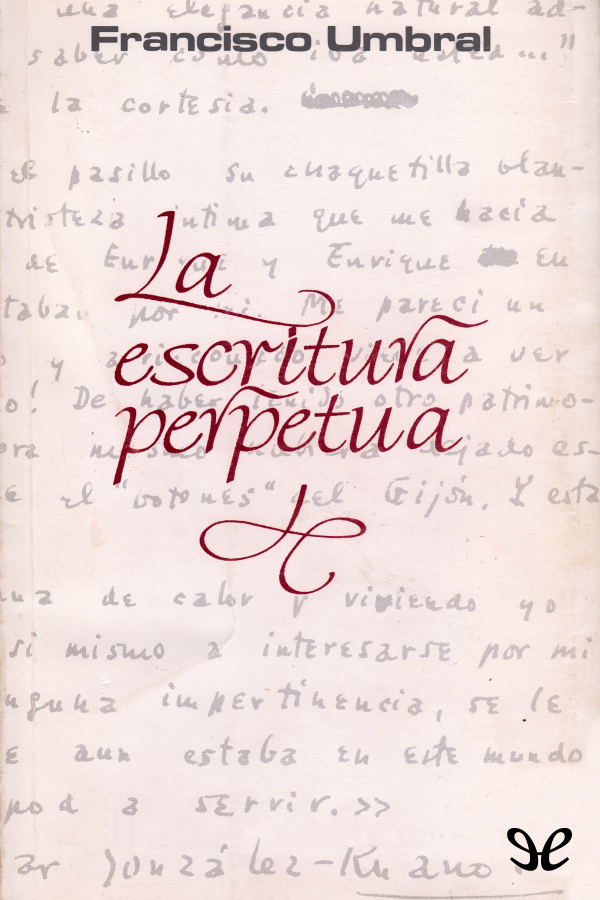 una elegancia natural ad-
Francisco Umbral
saber como iba usted..."
la cortesía.
el pasillo su chaquetilla blan-
tristeza íntima que me hacía
La
de Enrique y Enrique En
taba por mí. Me pareció un
escritura
y a ver
o! De haber tenido otro patrimo-
perpetua
ora jado es-
e el "botones" del Gijón. Y esta
una de calor y viviendo yo
si mismo a interesarse por mi
nguna impertinencia, se le
e aun estaba en este mundo
pod a servir.>>
ar González-Ruano.